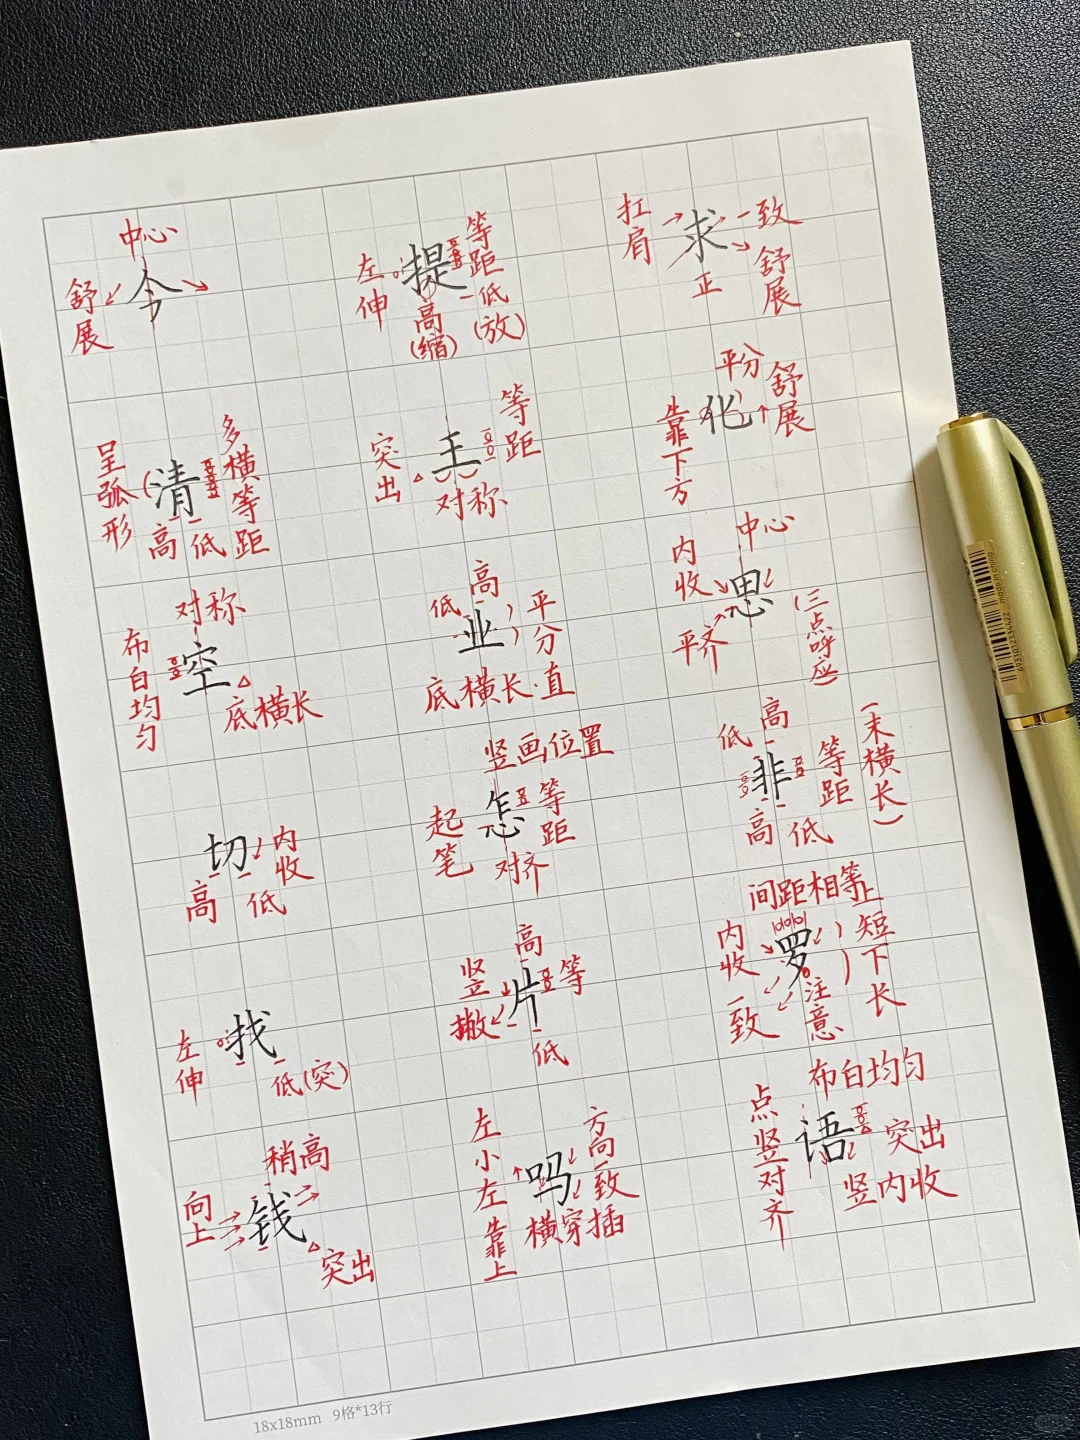 中心
舒展
今
左伸
提
等距
低
(放)
高
(缩)
扛肩
求
一致
舒展
正
呈弧形
清
多横等距
高 低
突出
王
等距
对称
平分
化
舒展
靠下方
对称
布白均匀
空
底横长
高
低
业
平分
底横长·直
中心
内收
思
平齐
(三点呼应)
切
内收
高 低
竖画位置
起笔
怎
等距
对齐
高
低
非
等距
(末横长)
高 低
左伸
找
低(突)
高
竖撇
片
等
低
间距相等
内收
罗
上短下长
一致
注意
稍高
向上
钱
突出
左小左靠上
吗
方向一致
横穿插
布白均匀
点竖对齐
语
突出
竖内收
18x18mm 9格*13行
made in china
6931012334522